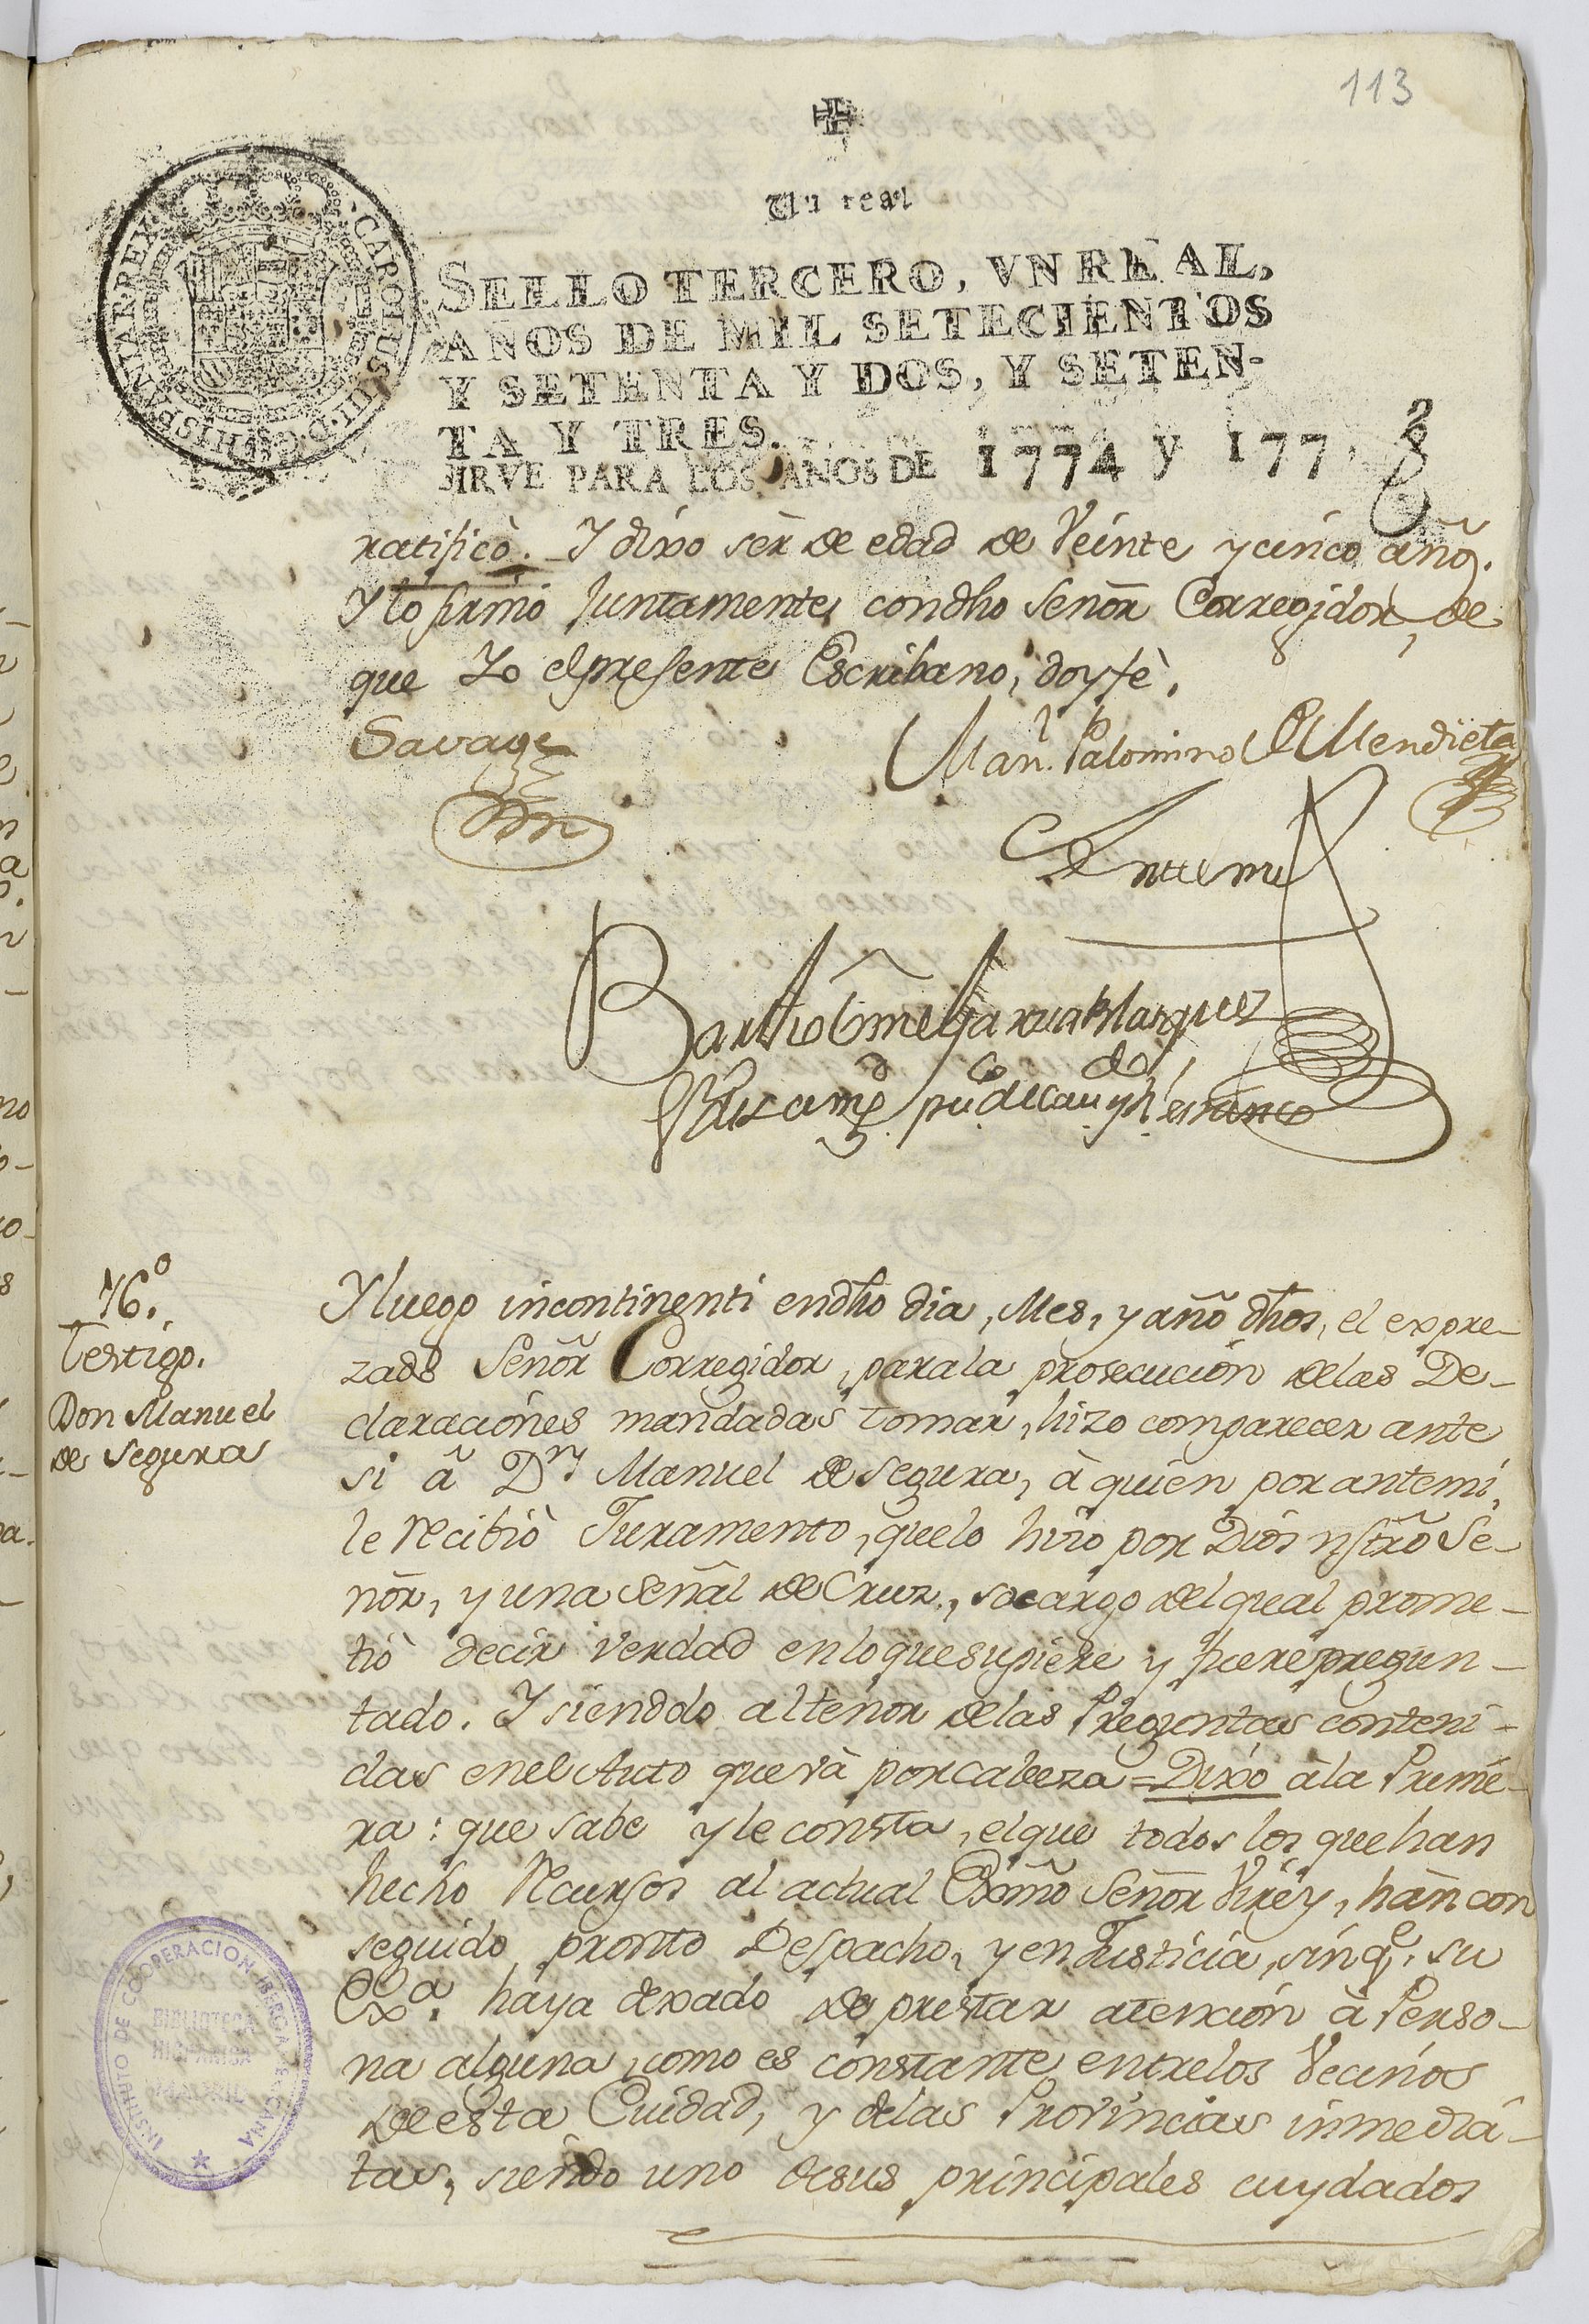 113
Un real
SELLO TERCERO, VN REAL,
AÑOS DE MIL SETECIENTOS
Y SETENTA Y DOS, Y SETEN-
TA Y TRES.
SIRVE PARA LOS AÑOS DE 1774 y 177
CAROLUS III D G HISPANIAR REX
ratificò. Y dixo sèr de edad de Veinte y cinco añoˢ.
Y lo firmò Juntamente, con dho Señor Corregidor, de
que Yo el presente Escribano, doy fè.
Savage
Manˡ. Palomino Mendieta
Ante mi
Barthme Garcia Blasquez
76.º
Testigo.
Don Manuel
de Segura
Y luego incontinenti en dho dia, Mes, y año dhos, el expre-
zado Señor Corregidor, para la prosecucion de las De-
claraciónes mandadas tomar, hizo comparecer ante
si â Dⁿ Manuel de Segura, à quien por ante mi,
le recibiò Juramento, que lo hizo por Dios nstrõ Se-
ñor, y una Señal de Cruz, so cargo del qual prome-
tiò decir verdad en lo que supiere y fuere pregun-
tado. Y siendolo al tenor de las Preguntas conteni-
das en el Auto que và por cabeza = Dixo à la Prime-
ra: que sabe y le consta, el que todos los que han
hecho Recursos al actual Exmõ Señor Virèy, han con
seguido pronto Despacho, y en Justicia, sin qᵉ. su
Exª. haya dexado de prestar atencion à Perso-
na alguna, como es constante entre los Vecinos
de esta Ciudad, y de las Provincias inmedia-
tas, siendo uno de sus principales cuydados
INSTITUTO DE COOPERACION IBEROAMERICANA
BIBLIOTECA
HISPANICA
MADRID